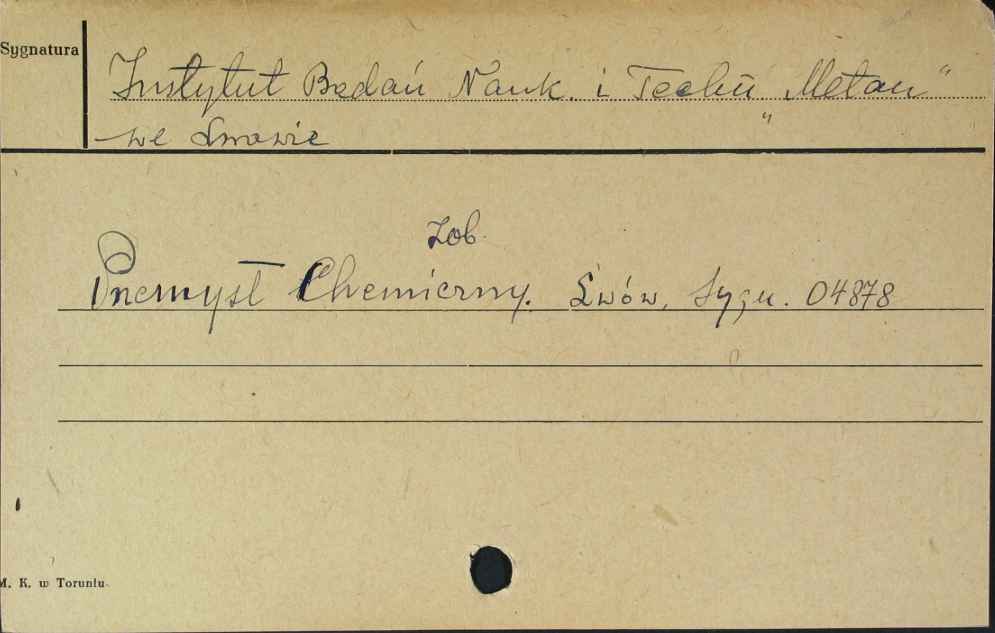 Sygnatura
Instytut Badań Nauk. i Techn. „Metan”
we Lwowie
Zob.
Przemysł Chemiczny. Lwów, Sygn. 04878
M. K. w Toruniu